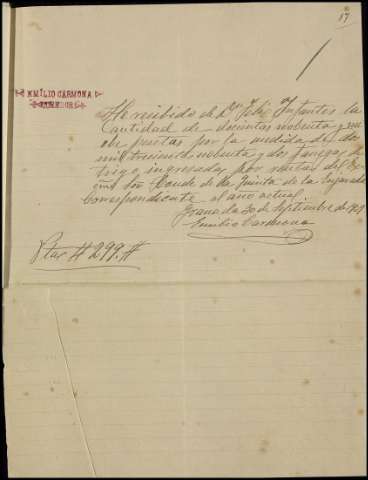 17
EMILIO CARMONA
CORREDOR
He recibido de Dn. Felix Infantes la
Cantidad de doscientas nobenta y nue
be pesetas por la medida de dos
mil trescientas nobenta y dos fanegas de
trigo ingresadas por rentas del
Conde de la Quinta de la Enjarada
Correspondiente al año actual.
Granada 30 de Septiembre de
Emilio Cardmona
Ptas # 299. #